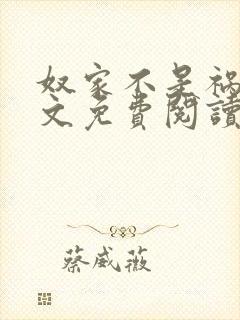 奴家不是祸
文免費閱讀
蔡威薇